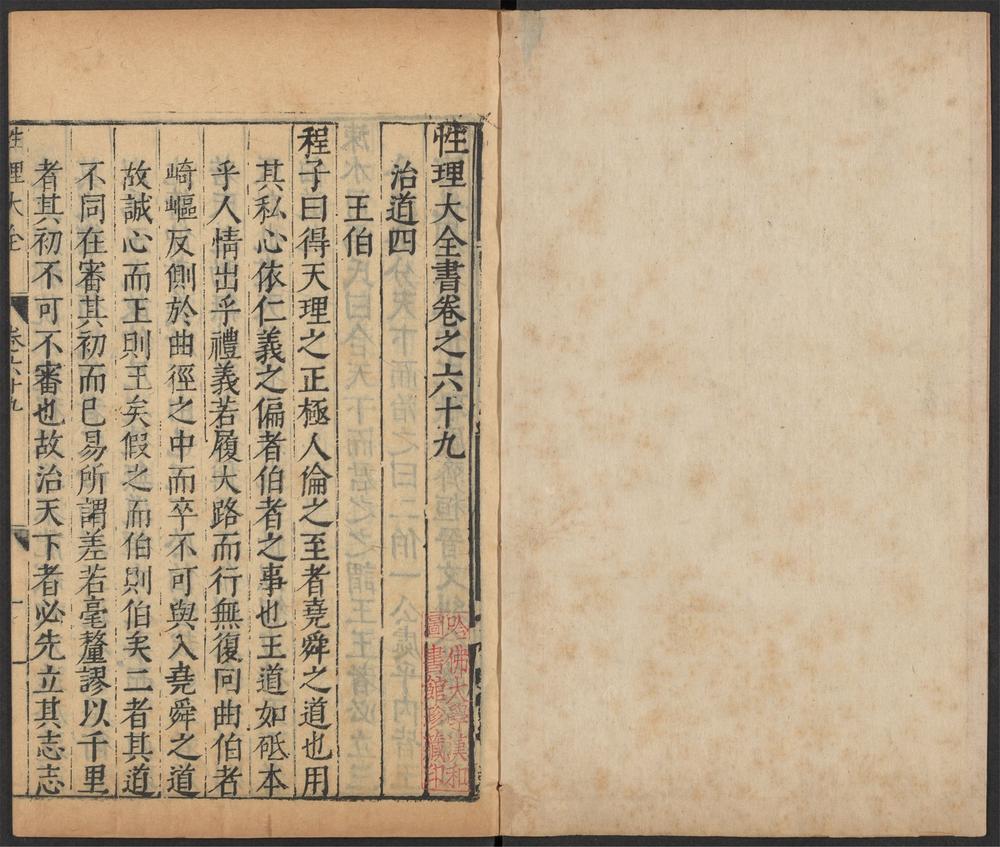 性理大全書卷之六十九
治道四
王伯
程子曰得天理之正極人倫之至者堯舜之道也用
其私心依仁義之偏者伯者之事也王道如砥本
乎人情出乎禮義若履大路而行無復回曲伯者
崎嶇反側於曲徑之中而卒不可與入堯舜之道
故誠心而王則王矣假之而伯則伯矣二者其道
不同在審其初而已易所謂差若毫釐謬以千里
者其初不可不審也故治天下者必先立其志志
性理大全 卷六十九
哈佛大學漢和
圖書館珍藏印